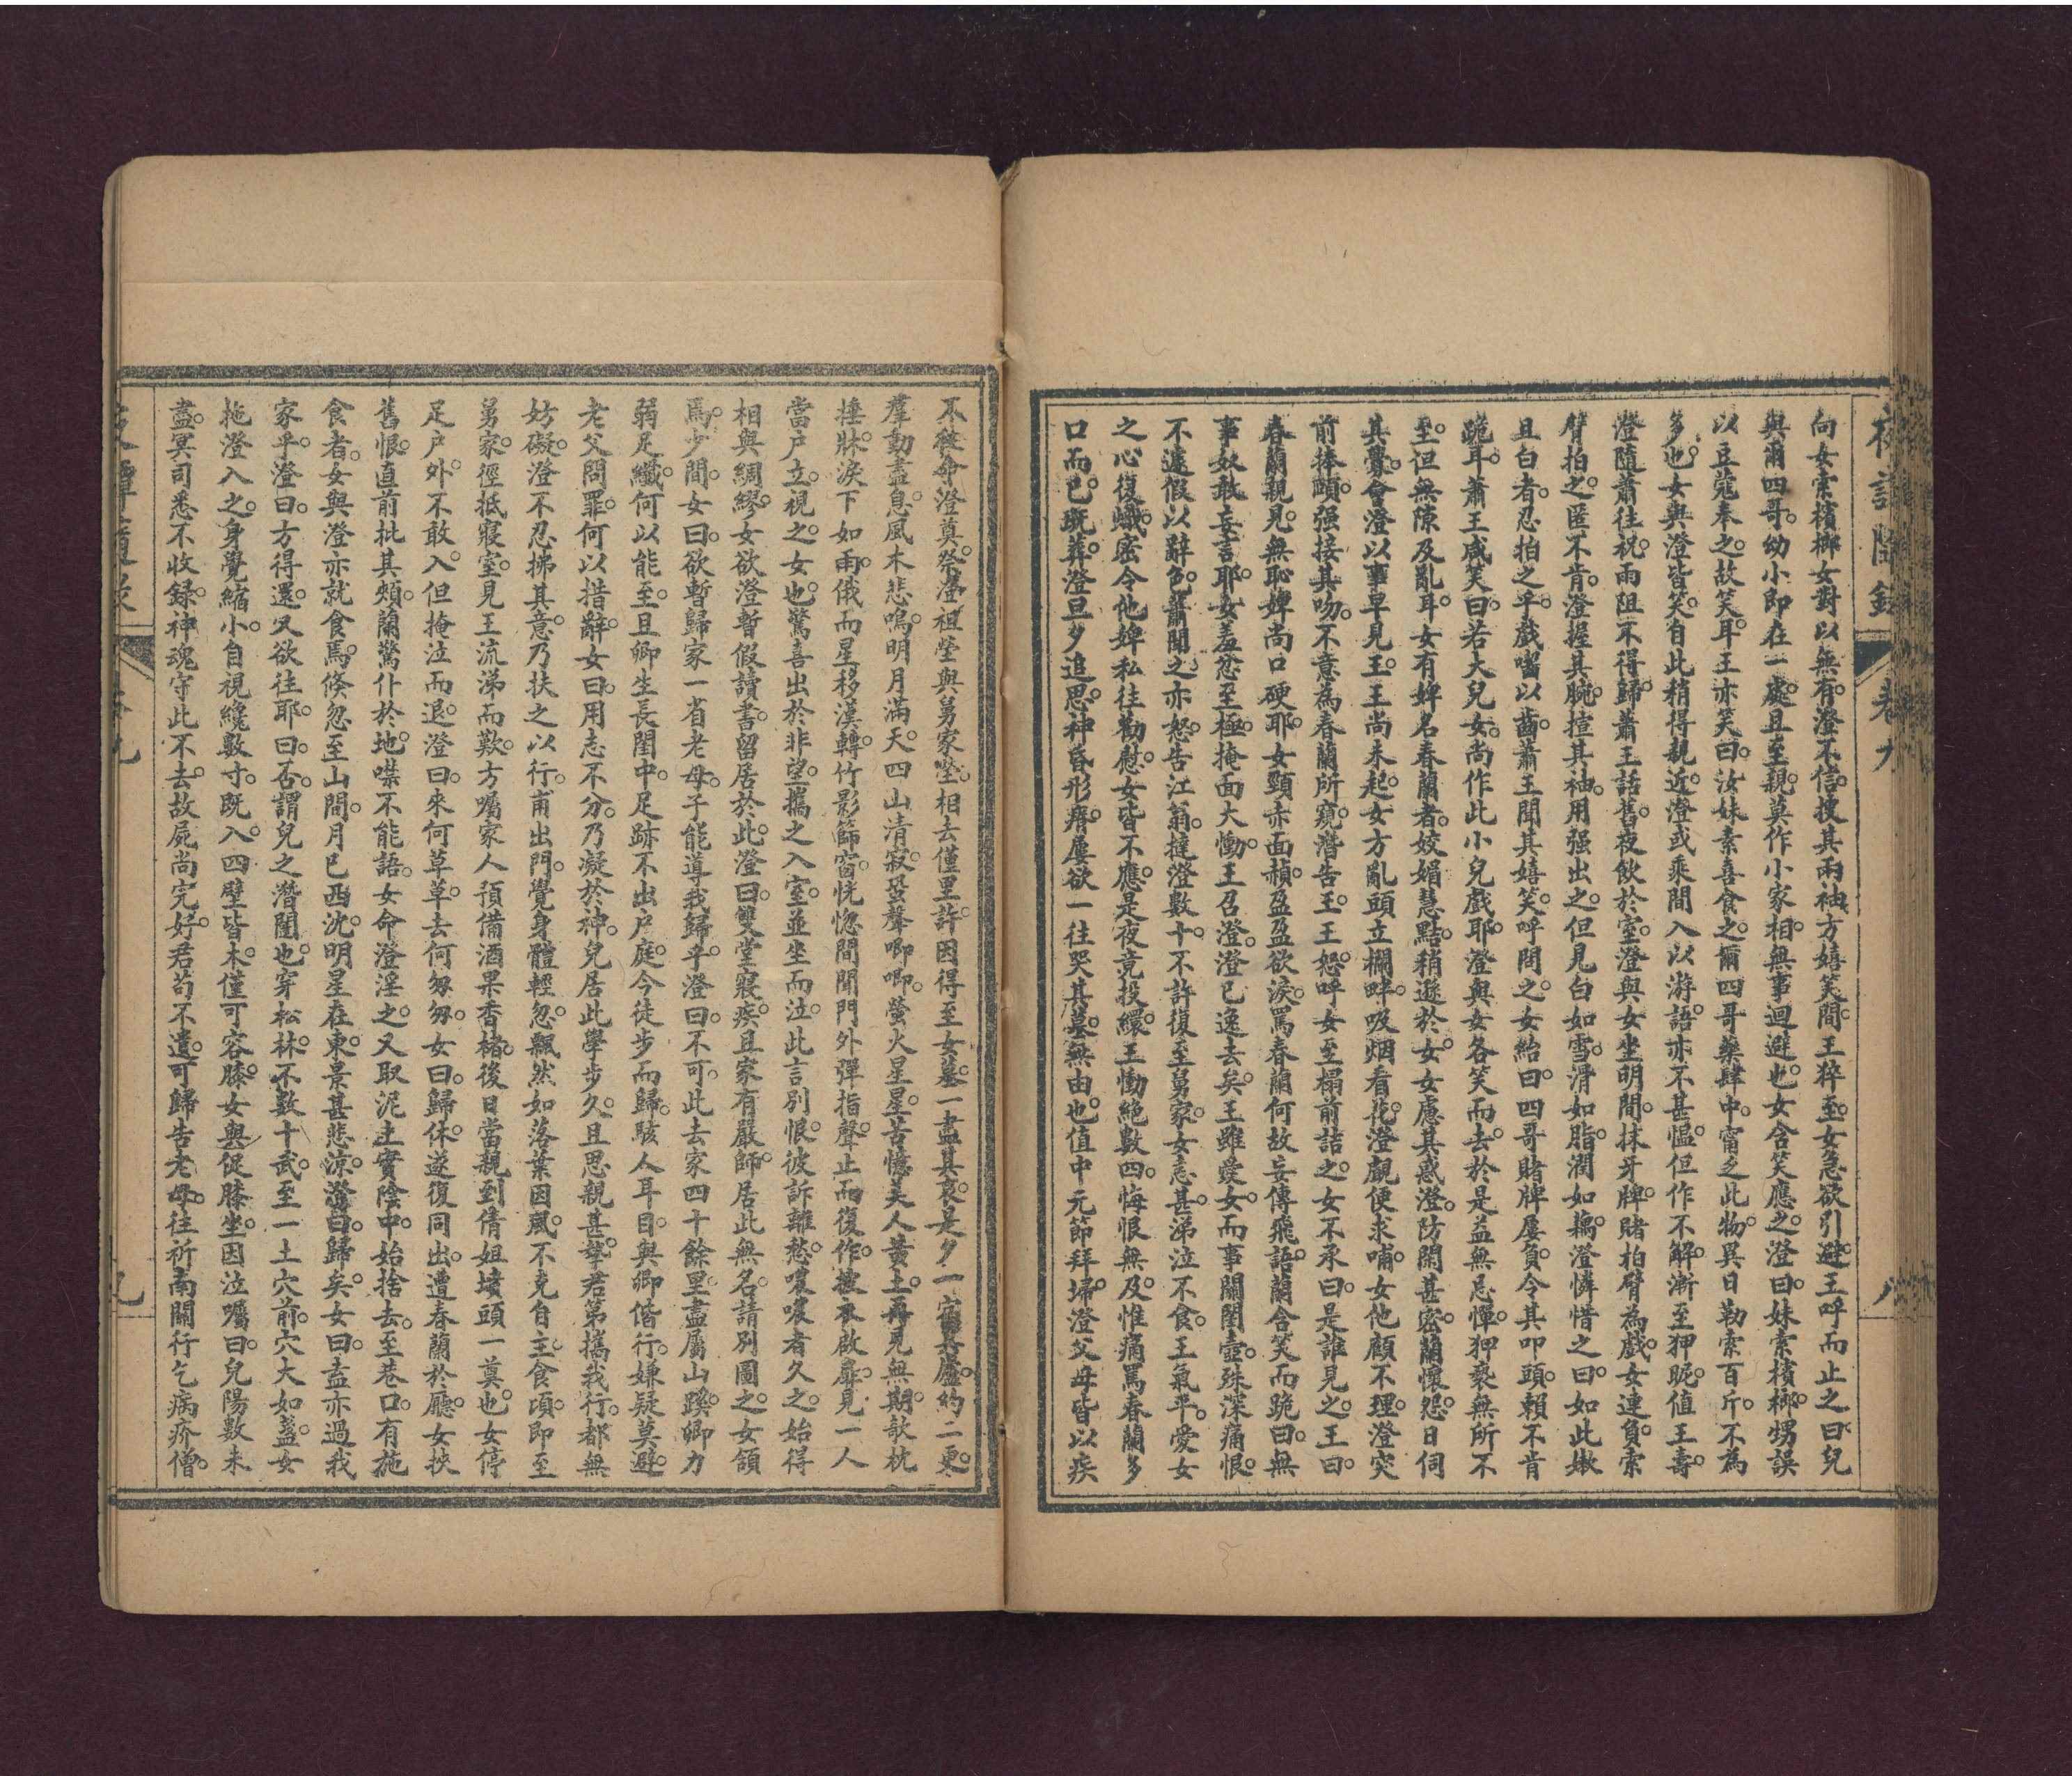 夜譚隨錄
卷九
八
向女索檳榔女對以無有澄不信搜其兩袖方嬉笑間王猝至女急欲引避王呼而止之曰兒
與爾四哥幼小即在一處且至親莫作小家相無事迴避也女含笑應之澄曰妹索檳榔甥誤
以豆蔻奉之故笑耳王亦笑曰汝妹素喜食之爾四哥藥肆中甯乏此物異日勒索百斤不為
多也女與澄皆笑自此稍得親近澄或乘間入以游語亦不甚慍但作不解漸至狎昵值王壽
澄隨蕭往祝雨阻不得歸蕭王話舊夜飲於室澄與女坐明間抹牙牌賭拍臂為戲女連負索
臂拍之匿不肯澄握其腕揎其袖用强出之但見白如雪滑如脂潤如藕澄憐惜之曰如此嫩
且白者忍拍之乎戲嚙以齒蕭王聞其嬉笑呼問之女紿曰四哥賭牌屢負令其叩頭賴不肯
跪耳蕭王咸笑曰若大兒女尚作此小兒戲耶澄與女各笑而去於是益無忌憚狎褻無所不
至但無隙及亂耳女有婢名春蘭者姣媚慧黠稍遜於女女慮其惑澄防閑甚密蘭懷怨日伺
其釁會澄以事早見王王尚未起女方亂頭立欄畔吸烟看花澄覷便求哺女他顧不理澄突
前捧頤强接其吻不意為春蘭所窺潛告王王怒呼女至榻前詰之女不承曰是誰見之王曰
春蘭親見無恥婢尚口硬耶女頸赤面赬盈盈欲淚罵春蘭何故妄傳飛語蘭含笑而跪曰無
事奴敢妄言耶女羞忿至極掩面大慟王召澄澄已逸去矣王雖愛女而事關閨壼殊深痛恨
不遽假以辭色蕭聞之亦怒告江翁撻澄數十不許復至舅家女恚甚涕泣不食王氣平愛女
之心復熾密令他婢私往勸慰女皆不應是夜竟投繯王慟絕數四悔恨無及惟痛罵春蘭多
口而已既葬澄旦夕追思神昏形瘠屢欲一往哭其墓無由也值中元節拜埽澄父母皆以疾
不雜命澄奠祭澄祖塋與舅家塋相去僅里許因得至女墓一盡其哀是夕一宿其廬約二更
羣動盡息風木悲鳴明月滿天四山清寂蛩聲唧唧螢火星星苦憶美人黃土再見無期歌枕
捶牀淚下如雨俄而星移漢轉竹影篩窗恍惚間聞門外彈指聲止而復作攬衣啟扉見一人
當户立視之女也驚喜出於非望攜之入室並坐而泣此言別恨彼訴離愁哀哀者久之始得
相與綢繆女欲澄暫假讀書留居於此澄曰雙堂寢疾且家有嚴師居此無名請別圖之女頷
焉少間女曰欲暫歸家一省老母子能導我歸乎澄曰不可此去家四十餘里盡屬山蹊卿力
弱足纖何以能至且卿生長閨中足跡不出户庭今徒步而歸駭人耳目與卿偕行嫌疑莫避
老父問罪何以措辭女曰用志不分乃凝於神兒居此學步久且思親甚摯君第攜我行都無
妨礙澄不忍拂其意乃扶之以行甫出門覺身體輕忽飄然如落葉因風不克自主食頃即至
舅家徑抵寢室見王流涕而歎方囑家人預備酒果香楮後日當親到倩姐墳頭一奠也女停
足户外不敢入但掩泣而退澄曰來何草草去何匆匆女曰歸休遂復同出遭春蘭於廳女挾
舊恨直前批其頰蘭驚仆於地喋不能語女命澄淫之又取泥土實陰中始捨去至巷口有施
食者女與澄亦就食焉倏忽至山間月已西沈明星在東景甚悲涼澄曰歸矣女曰盍亦過我
家乎澄曰方得還又欲往耶曰否謂兒之潛闥也穿松林不數十武至一土穴前穴大如盞女
拖澄入之身覺縮小自視纔數寸既入四壁皆木僅可容膝女與促膝坐因泣囑曰兒陽數未
盡冥司悉不收録神魂守此不去故屍尚完好君苟不遺可歸告老母往祈南關行乞病疥僧
夜譚隨錄
卷九
九